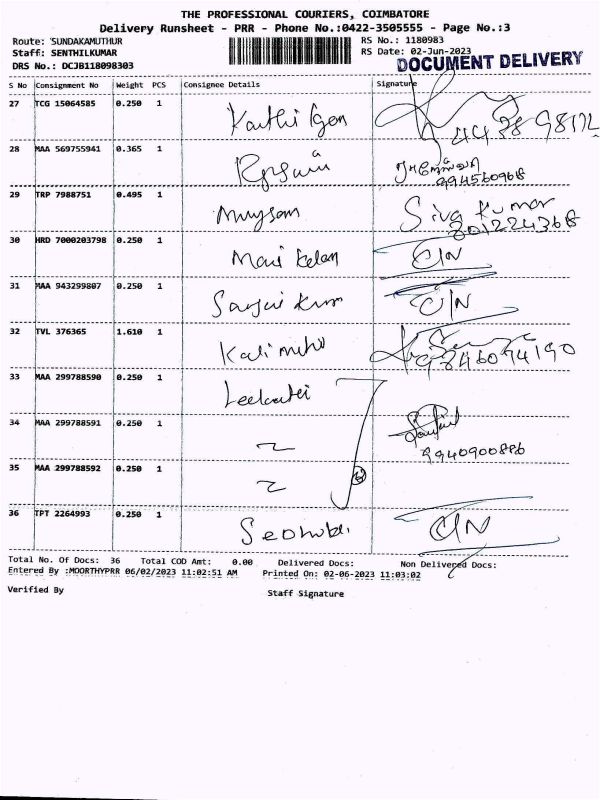 THE PROFESSIONAL COURIERS, COIMBATORE
Delivery Runsheet - PRR - Phone No.:0422-3505555 - Page No.:3
Route: 'SUNDAKAMUTHUR
RS No.: 1180983
Staff: SENTHILKUMAR
RS Date: 02-Jun-2023
DRS No.: DCJB118098303
DOCUMENT DELIVERY
S No Consignment No Weight PCS Consignee Details Signature
27 TCG 15064585 0.250 1
28 MAA 569755941 0.365 1
9945609618
29 TRP 7988751 0.495 1 Siva Kumar
801224368
30 HRD 7000203798 0.250 1 C/N
31 MAA 943299807 0.250 1 C/N
32 TVL 376365 1.610 1
9846094190
33 MAA 299788590 0.250 1
34 MAA 299788591 0.250 1
9940900886
35 MAA 299788592 0.250 1
36 TPT 2264993 0.250 1 C/N
Total No. Of Docs: 36 Total COD Amt: 0.00 Delivered Docs: Non Delivered Docs:
Entered By :MOORTHYPRR 06/02/2023 11:02:51 AM Printed On: 02-06-2023 11:03:02
Verified By Staff Signature